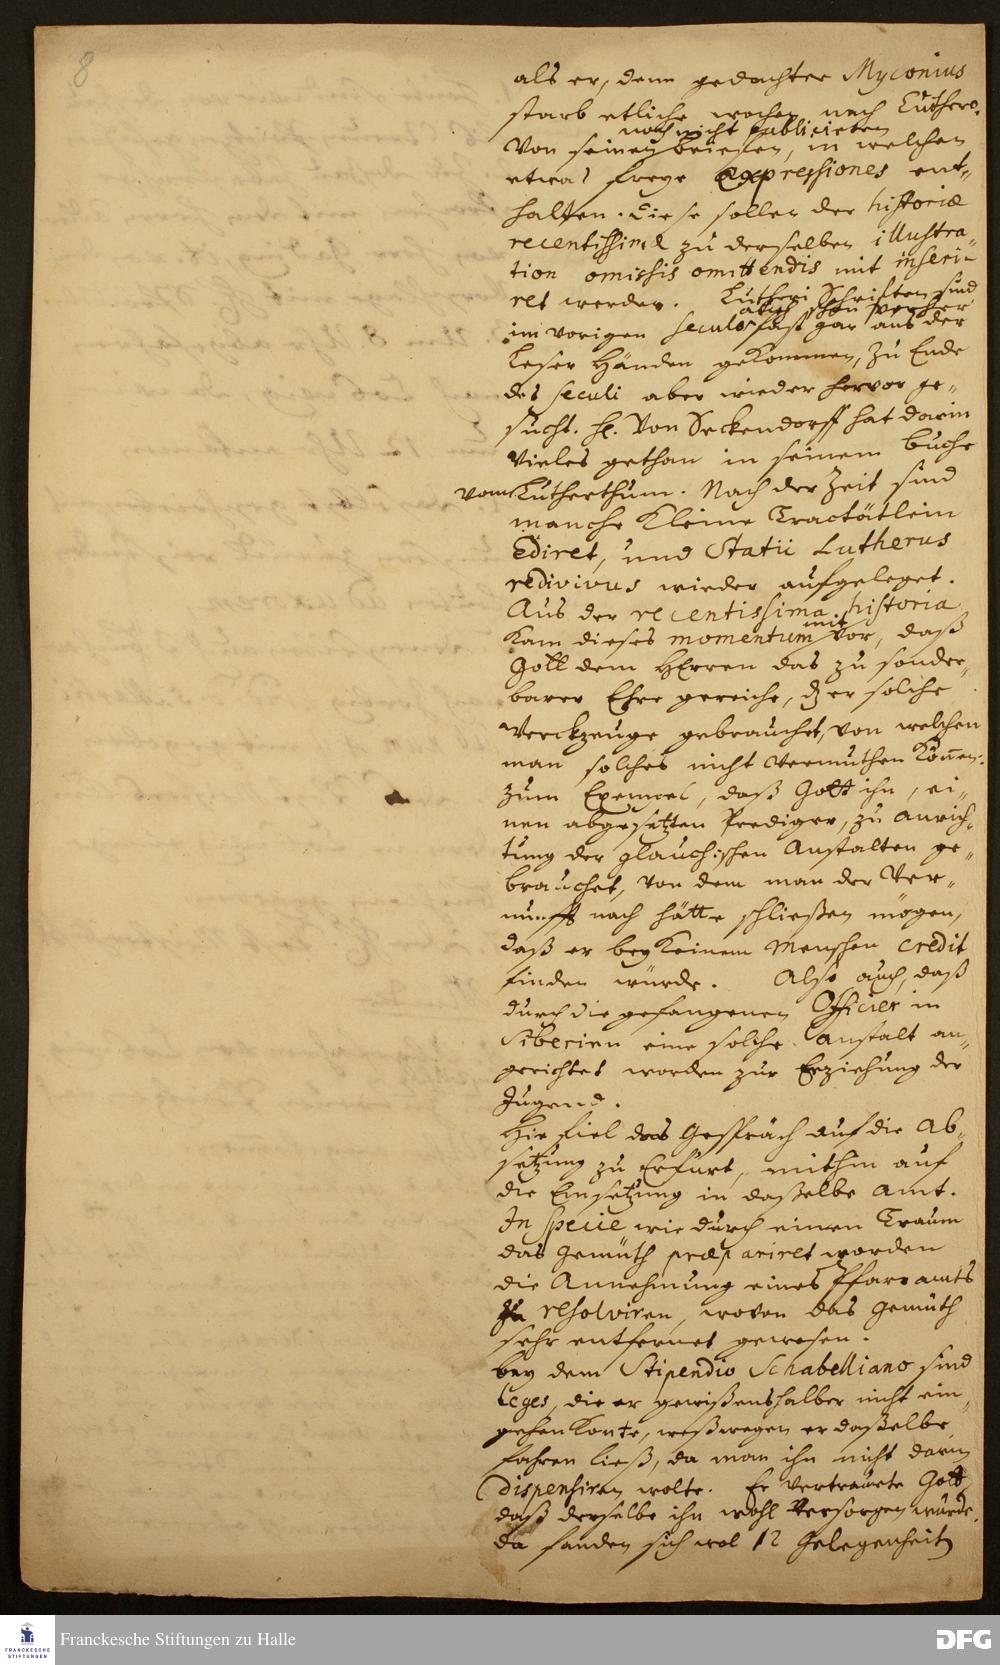 8
als er, denn gedachter Myconius
starb etliche wochen nach Luthero.
noch nicht publicirten
Von seinen briefen, in welchen
etwas freye expressiones ent-
halten. Diese sollen der historiæ
recentissimæ zu derselben illustra-
tion omissis omittendis mit inseri-
ret werden. Lutheri Schriften sind
auch schon vorher
im vorigen seculo fast gar aus der
Leser Händen gekommen, zu Ende
des seculi aber wieder hervor ge-
sucht. H. Von Seckendorff hat darin
vieles gethan in seinem buche
vom Lutherthum. Nach der Zeit sind
manche kleine Tractätlein
Ediret, und Statii Lutherus
redivivus wieder aufgeleget.
Aus der recentissima historia
mit
kam dieses momentum vor, daß
Gott dem HErren das zu sonder-
barer Ehre gereiche, dz er solche
Werckzeuge gebrauchet, von welchen
man solches nicht vermuthen können.
zum Exempel, daß Gott ihn, ei-
nen abgesetzten Prediger, zu anrich-
tung der glauchischen Anstalten ge-
brauchet, von dem man der Ver-
nunfft nach hätte schließen mögen,
daß er bey keinem Menschen credit
finden würde. Also auch, daß
durch die gefangenen Officier in
Siberien eine solche anstalt an-
gerichtet worden zur Erziehung der
Jugend.
Hie fiel das Gespräch auf die Ab-
setzung zu Erfurt, mithin auf
die Einsetzung in daßelbe Amt.
In specie wie durch einen Traum
das Gemüth præpariret worden
die Annehmung eines Pfarramts
zu resolviren, wovon das Gemüth
sehr entfernet gewesen.
bey dem Stipendio Schabelliano sind
leges, die er gewißenshalber nicht ein-
gehen konte, weßwegen er daßelbe
fahren ließ, da man ihn nicht darin
dispensiren wolte. Er vertrauete Gott,
daß derselbe ihn wohl versorgen würde.
da fanden sich wol 12 Gelegenheit
FRANCKESCHE
STIFTUNGEN
Franckesche Stiftungen zu Halle
DFG